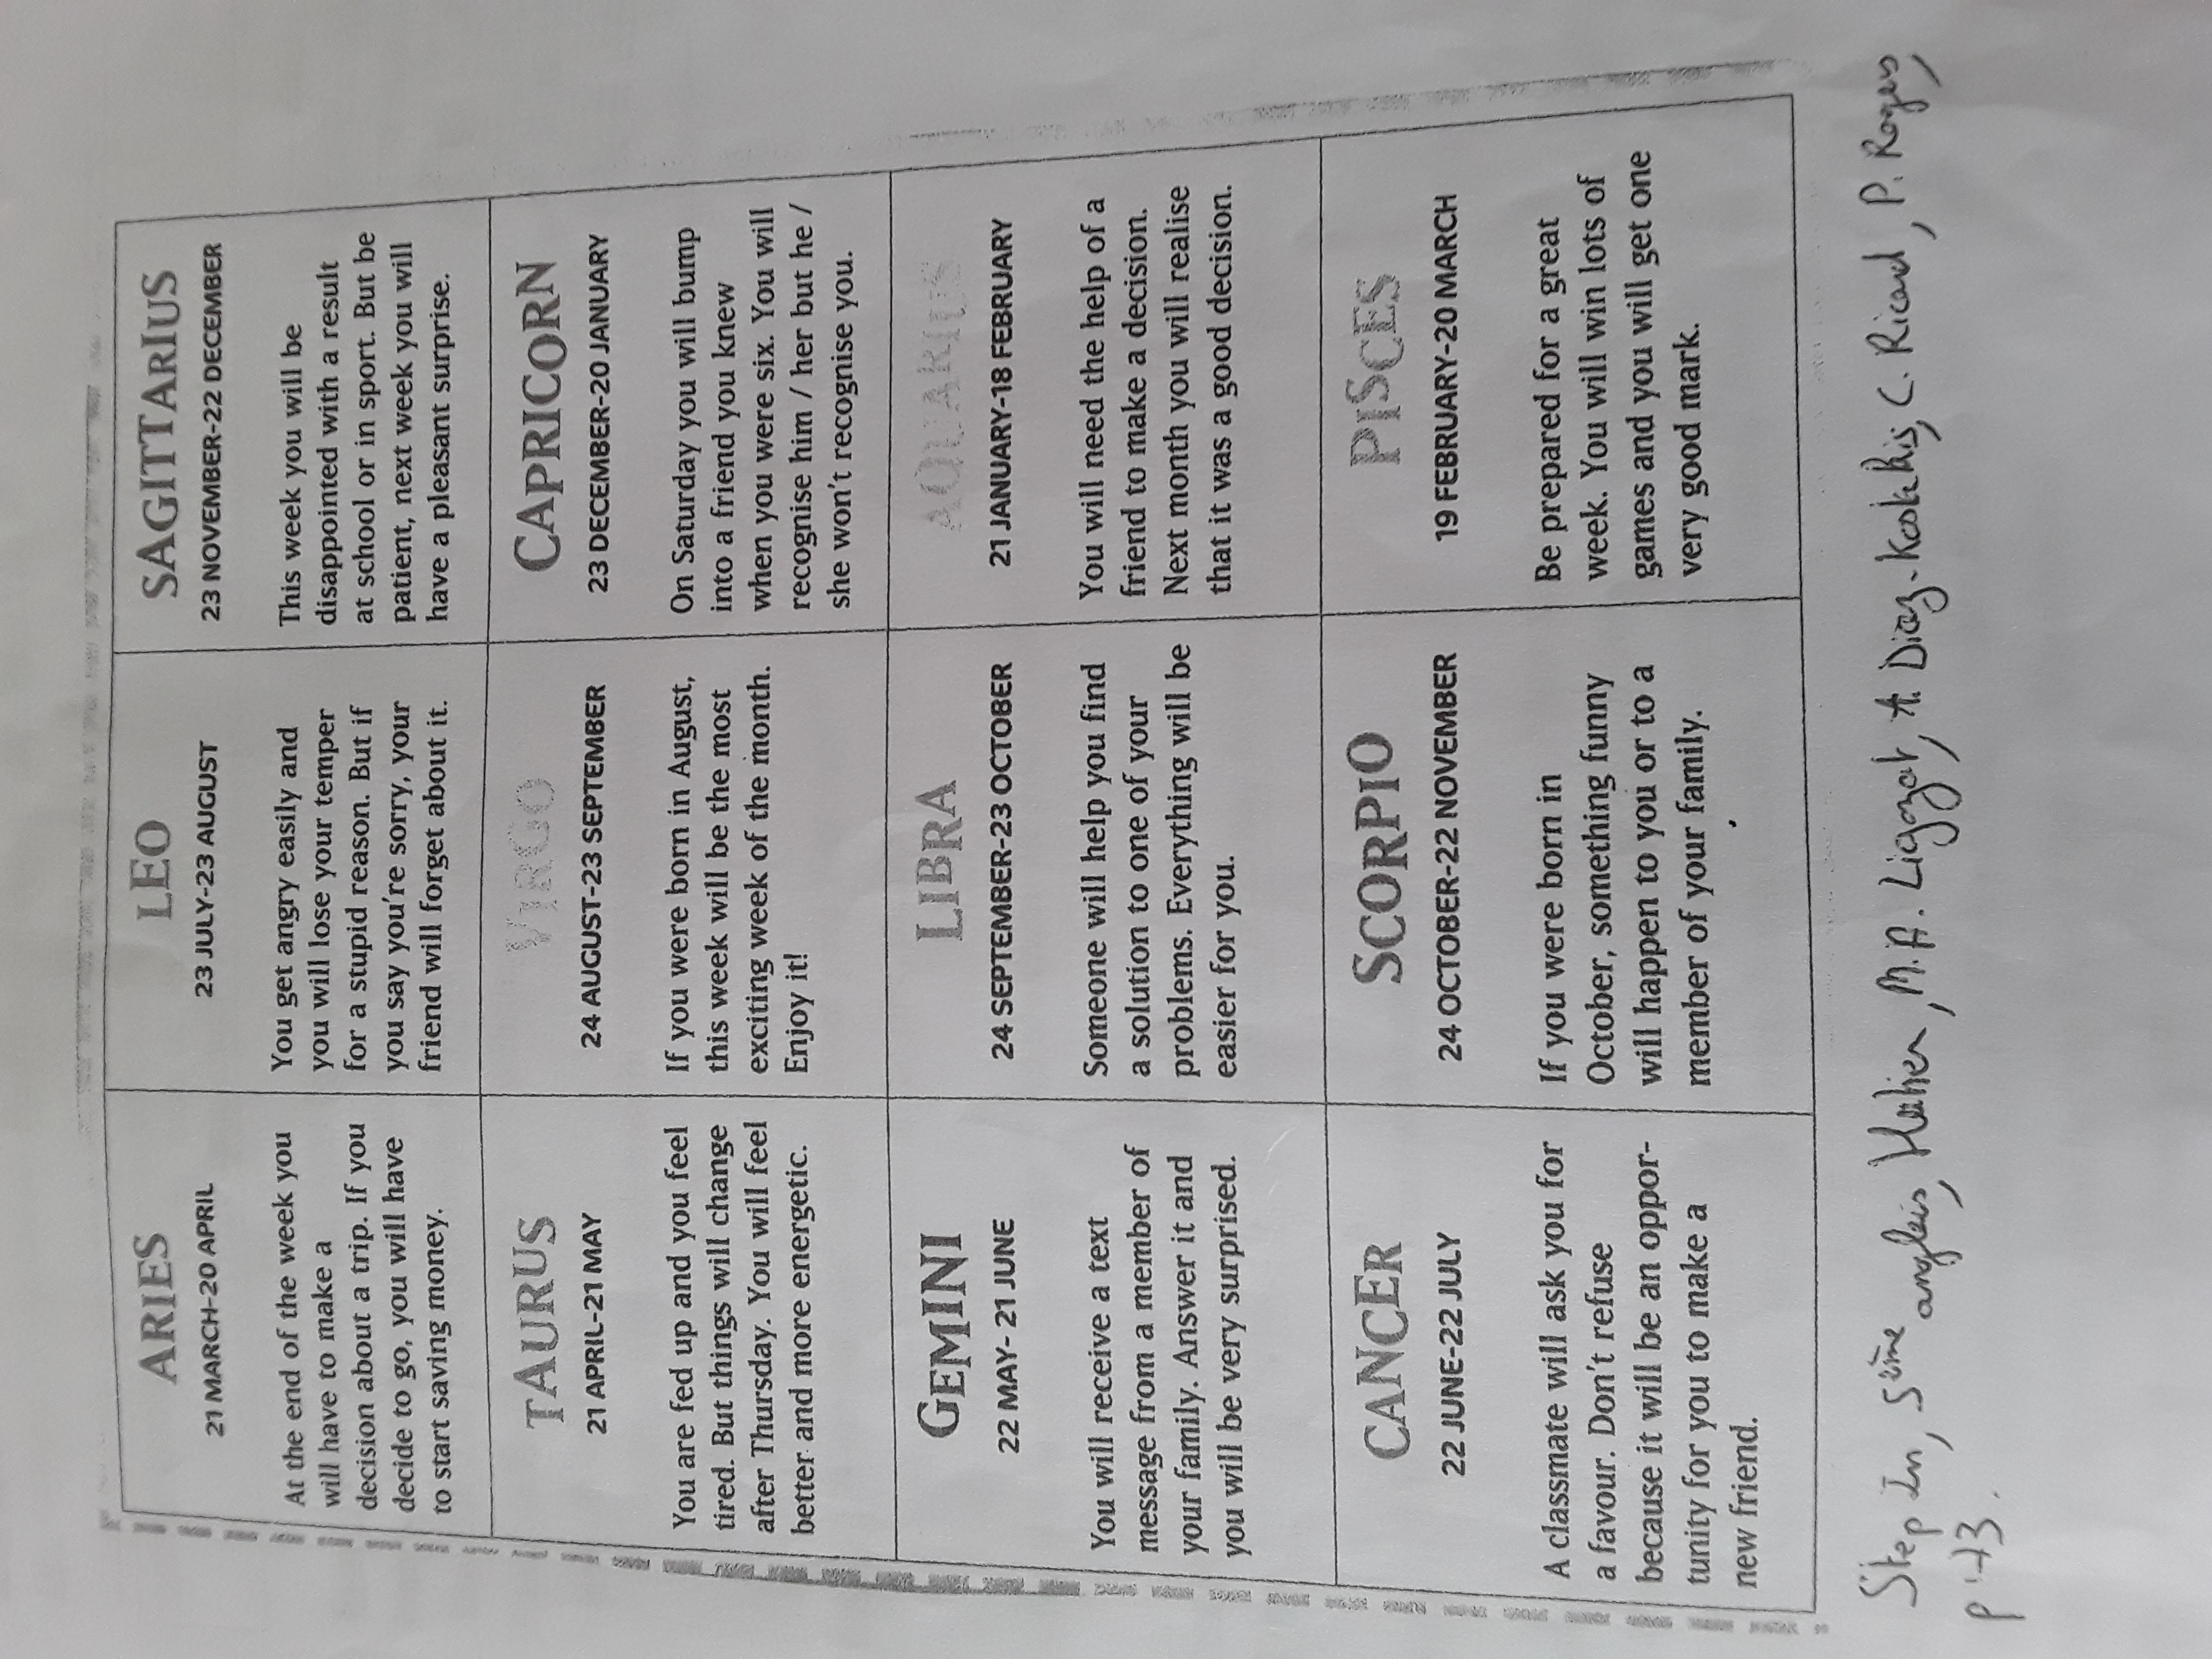 ARIES
21 MARCH-20 APRIL
At the end of the week you
will have to make a
decision about a trip. If you
decide to go, you will have
to start saving money.
LEO
23 JULY-23 AUGUST
You get angry easily and
you will lose your temper
for a stupid reason. But if
you say you're sorry, your
friend will forget about it.
SAGITTARIUS
23 NOVEMBER-22 DECEMBER
This week you will be
disappointed with a result
at school or in sport. But be
patient, next week you will
have a pleasant surprise.
TAURUS
21 APRIL-21 MAY
You are fed up and you feel
tired. But things will change
after Thursday. You will feel
better and more energetic.
VIRGO
24 AUGUST-23 SEPTEMBER
If you were born in August,
this week will be the most
exciting week of the month.
Enjoy it!
CAPRICORN
23 DECEMBER-20 JANUARY
On Saturday you will bump
into a friend you knew
when you were six. You will
recognise him / her but he /
she won't recognise you.
GEMINI
22 MAY- 21 JUNE
You will receive a text
message from a member of
your family. Answer it and
you will be very surprised.
LIBRA
24 SEPTEMBER-23 OCTOBER
Someone will help you find
a solution to one of your
problems. Everything will be
easier for you.
AQUARIUS
21 JANUARY-18 FEBRUARY
You will need the help of a
friend to make a decision.
Next month you will realise
that it was a good decision.
CANCER
22 JUNE-22 JULY
A classmate will ask you for
a favour. Don't refuse
because it will be an oppor-
tunity for you to make a
new friend.
SCORPIO
24 OCTOBER-22 NOVEMBER
If you were born in
October, something funny
will happen to you or to a
member of your family.
PISCES
19 FEBRUARY-20 MARCH
Be prepared for a great
week. You will win lots of
games and you will get one
very good mark.
Step In, 5ème anglais, Hatier, M.A. Ligozat, A. Diaz-Kostakis, C. Ricard, P. Roges,
p.73.